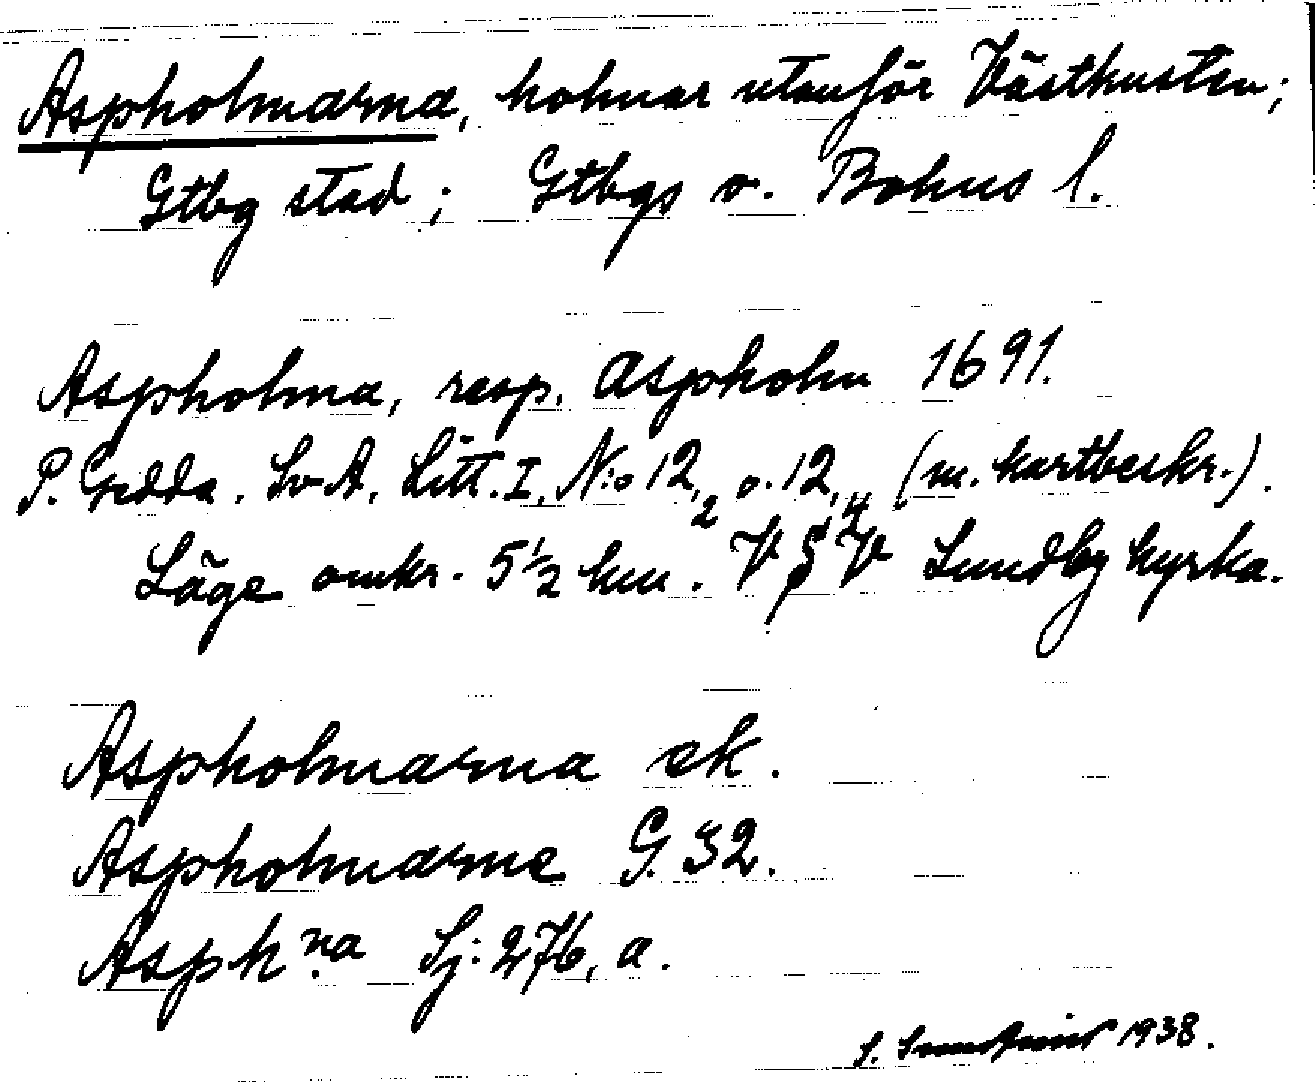 Aspholmarna, holmar utanför Västkusten;
Gtbg stad; Gtbgs o. Bohus l.
Aspholma, resp. Aspholm 1691.
P. Gedda. Sv. A. Litt. I, N:o 12,2 o. 12,4 (m. kartbeskr.).
Läge omkr. 5 1/2 km. V S V Lundby kyrka.
Aspholmarna ek.
Aspholmarne G. 32.
Asph:na Sj: 276, a.
S. 1938.